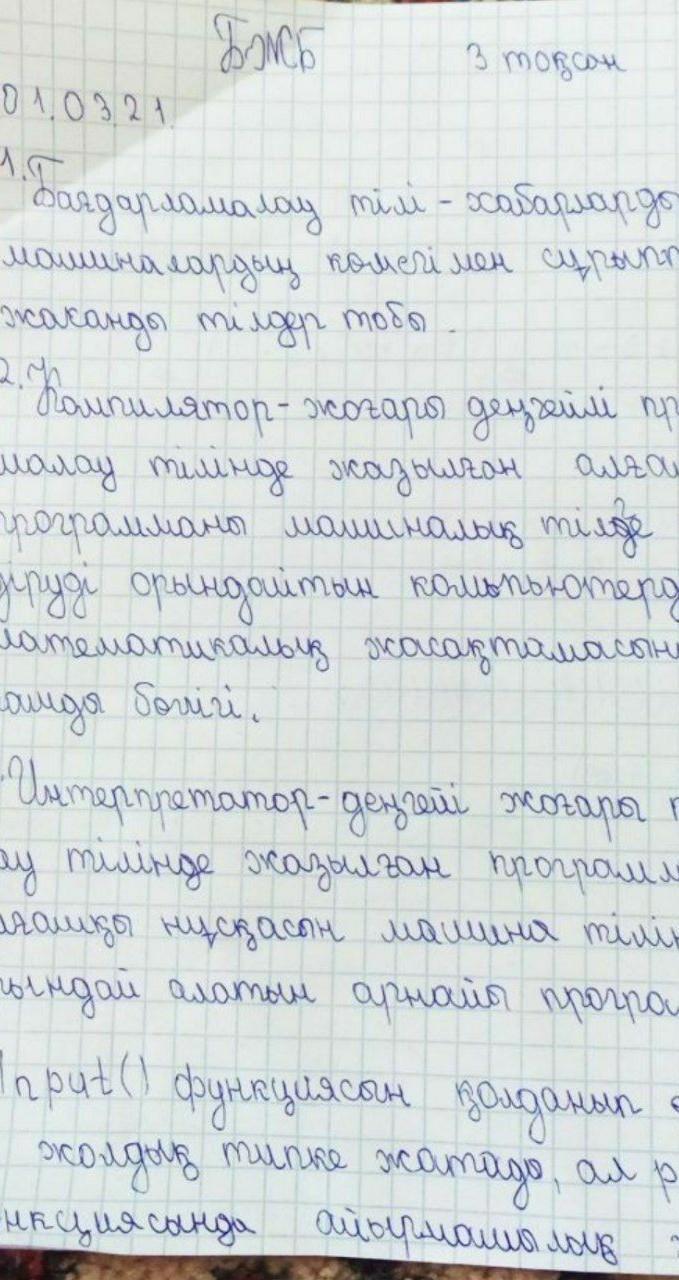 БЖБ 3 тоқсан
01.03.21.
1. Бағдарламалау тілі - хабарларды
машиналардың көмегімен сұрыпт
жасанды тілдер тобы.
2. Компилятор - жоғары деңгейлі пр
малау тілінде жазылған алға
программаны машиналық тілге
діруді орындайтын компьютерд
математикалық жасақтамасын
бөлігі.
Интерпретатор - деңгейі жоғары п
ау тілінде жазылған программ
лғашқы нұсқасын машина тілін
рындай алатын арнайы програ
Input() функциясын қолданып
жолдық типке жатады, ал p
нкциясында айырмашылық